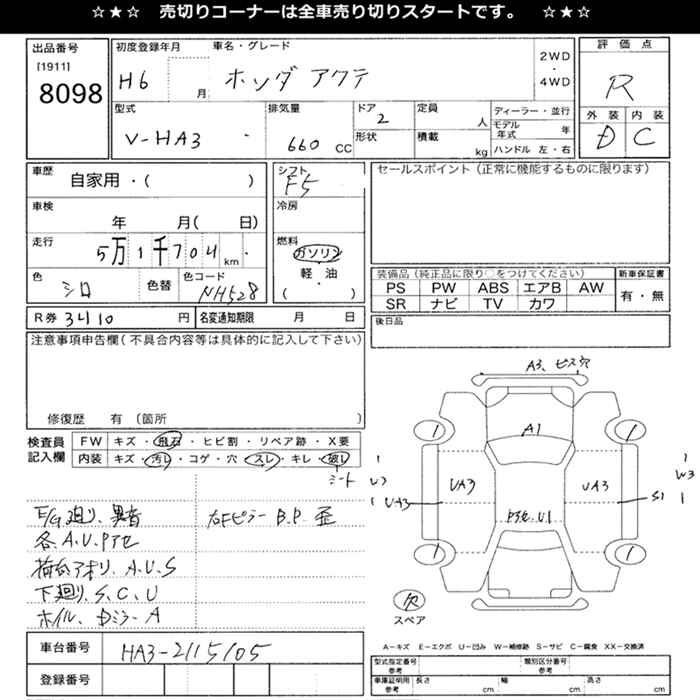 ☆★☆ 売切りコーナーは全車売り切りスタートです。 ☆★☆
出品番号
[1911]
8098
初度登録年月
H6 月
車名・グレード
ホンダ アクティ
2WD
・
4WD
評価点
R
外装 内装
D C
型式
V-HA3
排気量
660 CC
ドア
2
形状
定員
人
積載
kg
ディーラー・並行
モデル年式 年
ハンドル 左・右
車歴
自家用・( )
車検
年 月( 日)
走行
5万1千704 km
色
シロ
色替
色コード
NH528
シフト
F5
冷房
燃料
ガソリン
軽・油
( )
セールスポイント(正常に機能するものに限ります)
装備品(純正品に限り○をつけてください)
PS PW ABS エアB AW
SR ナビ TV カワ
新車保証書
有・無
R券 3410 円
名変通知期限 月 日
後日品
注意事項申告欄(不具合内容等は具体的に記入して下さい)
修復歴 有 (箇所 )
検査員
記入欄
FW キズ・飛石・ヒビ割・リペア跡・X要
内装 キズ・汚レ・コゲ・穴・スレ・キレ・破レ
シート
E/G廻り、異音
右Fピラー B.P. 歪
各、A.U.Pアセ
荷台アオリ、A.U.S
下廻り、S.C.U
ホイル、Dミラー A
車台番号
HA3-2115105
登録番号
A3、ビス穴
A1
UA3
UA3
UA3
Pアセ、U1
S1
W3
U3
欠
スペア
A-キズ E-エクボ U-凹み W-補修跡 S-サビ C-腐食 XX-交換済
型式指定番号
参考
類別区分番号
参考
車庫証明用
参考
長さ cm
幅 cm
高さ cm